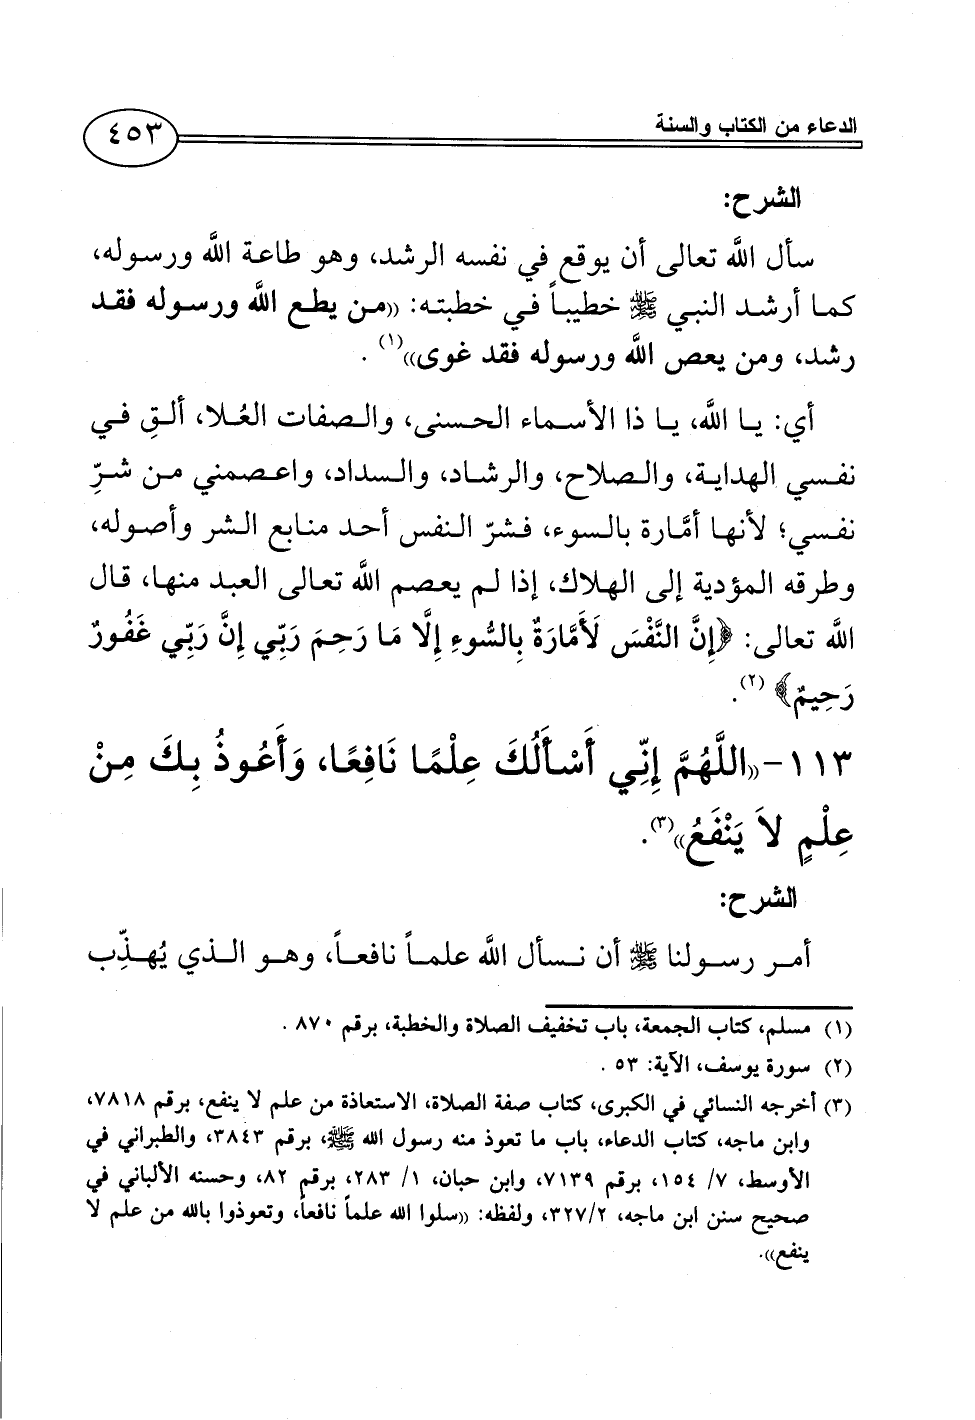 الدعاء من الكتاب والسنة
٤٥٣
الشرح:
سأل الله تعالى أن يوقع في نفسه الرشد، وهو طاعة الله ورسوله،
كما أرشد النبي ﷺ خطيباً في خطبته: ((من يطع الله ورسوله فقد
رشد، ومن يعص الله ورسوله فقد غوى))(١) .
أي: يا الله، يا ذا الأسماء الحسنى، والصفات العُلا، ألقِ في
نفسي الهداية، والصلاح، والرشاد، والسداد، واعصمني من شرِّ
نفسي؛ لأنها أمَّارة بالسوء، فشرّ النفس أحد منابع الشر وأصوله،
وطرقه المؤدية إلى الهلاك، إذا لم يعصم الله تعالى العبد منها، قال
الله تعالى: ﴿إِنَّ النَّفْسَ لَأَمَّارَةٌ بِالسُّوءِ إِلَّا مَا رَحِمَ رَبِّي إِنَّ رَبِّي غَفُورٌ
رَحِيمٌ﴾ (٢).
١١٣- ((اللَّهُمَّ إِنِّي أَسْأَلُكَ عِلْمًا نَافِعًا، وَأَعُوذُ بِكَ مِنْ
عِلْمٍ لاَ يَنْفَعُ))(٣).
الشرح:
أمر رسولنا ﷺ أن نسأل الله علماً نافعاً، وهو الذي يُهذِّب
(١) مسلم، كتاب الجمعة، باب تخفيف الصلاة والخطبة، برقم ٨٧٠ .
(٢) سورة يوسف، الآية: ٥٣ .
(٣) أخرجه النسائي في الكبرى، كتاب صفة الصلاة، الاستعاذة من علم لا ينفع، برقم ٧٨١٨،
وابن ماجه، كتاب الدعاء، باب ما تعوذ منه رسول الله ﷺ، برقم ٣٨٤٣، والطبراني في
الأوسط، ٧/ ١٥٤، برقم ٧١٣٩، وابن حبان، ١/ ٢٨٣، برقم ٨٢، وحسنه الألباني في
صحيح سنن ابن ماجه، ٣٢٧/٢، ولفظه: ((سلوا الله علماً نافعاً، وتعوذوا بالله من علم لا
ينفع)).